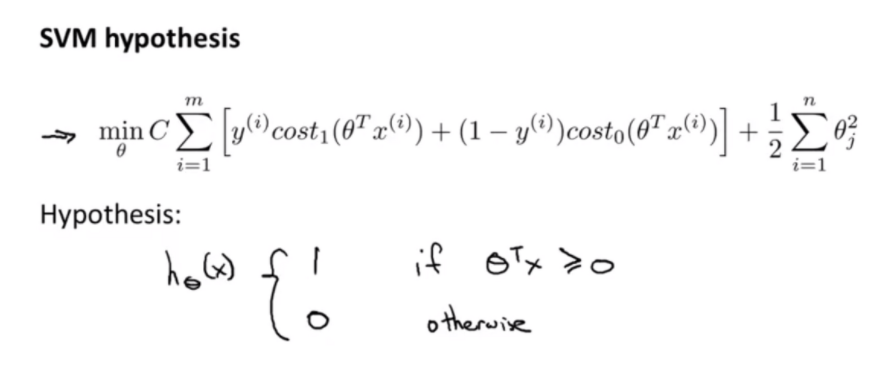 SVM hypothesis
→ min_θ C ∑_{i=1}^{m} [y^{(i)} cost₁(θᵀx^{(i)}) + (1 − y^{(i)})cost₀(θᵀx^{(i)})] + 1/2 ∑_{i=1}^{n} θ_j^2
Hypothesis:
h_θ(x) { 1 if θᵀx ⩾ 0
0 otherwise